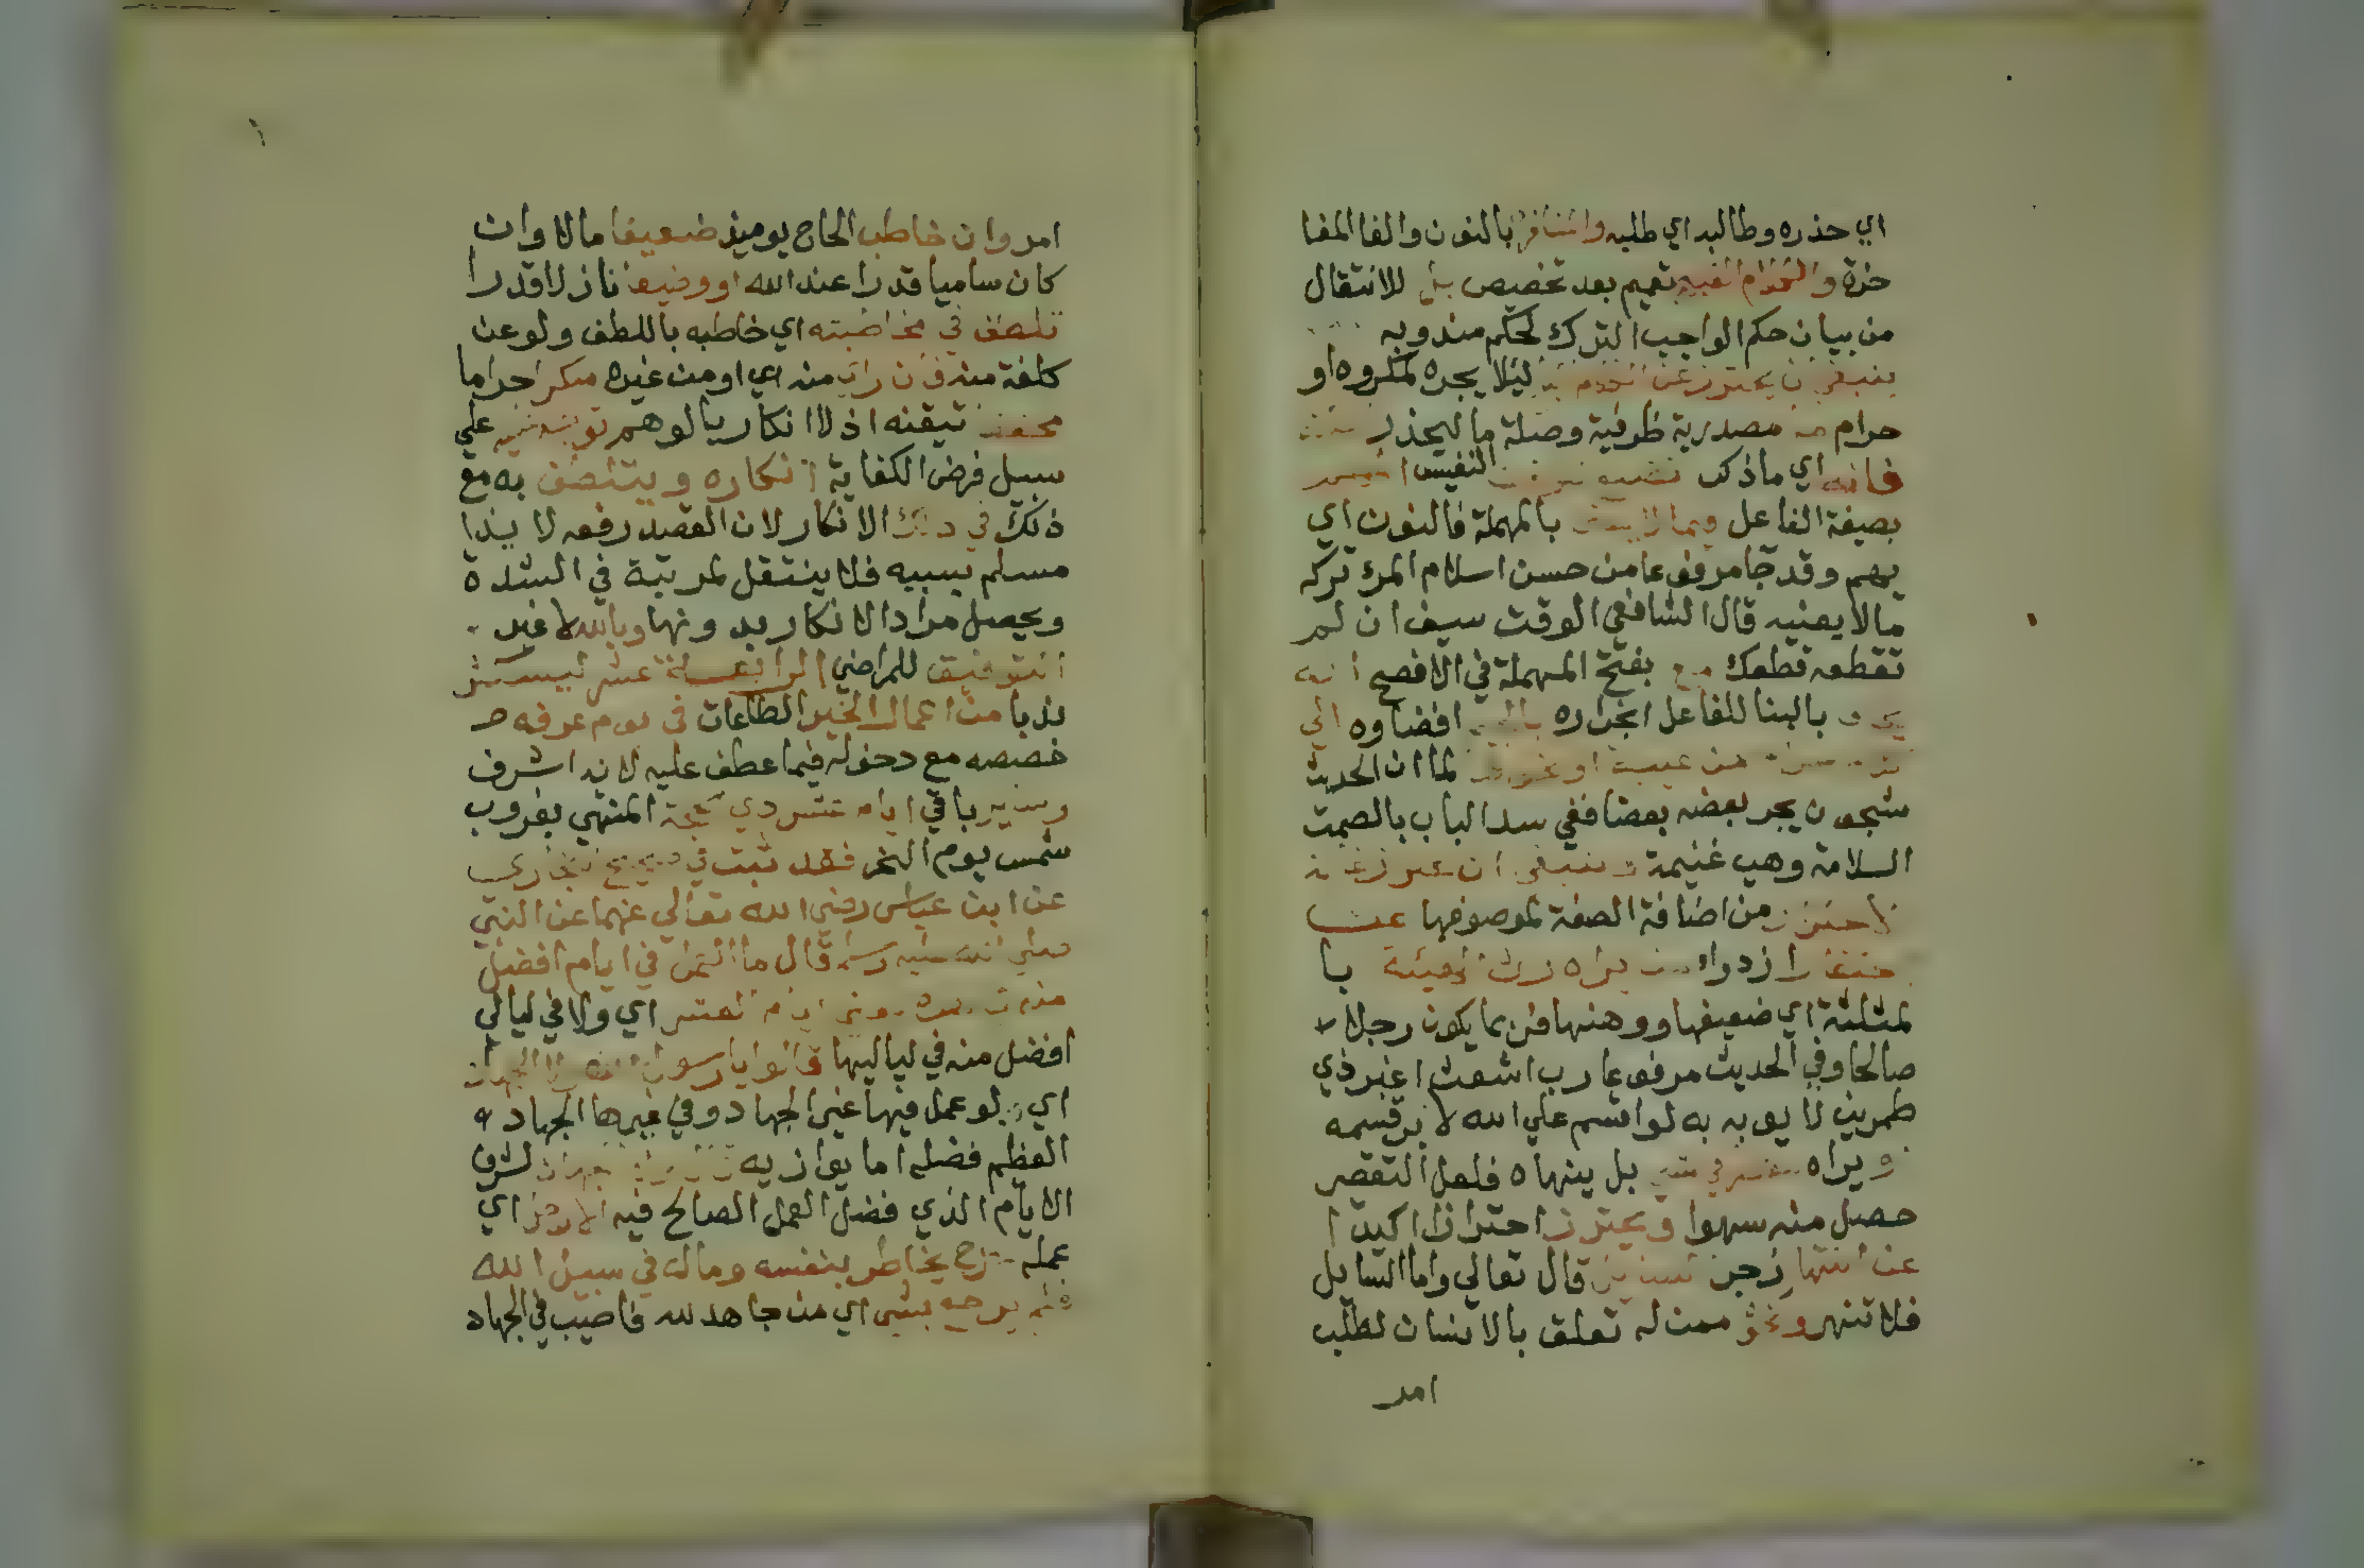 اي حذره وطالبه اي طلبه والتنافر بالنون والفا المفا
خرة والكلام القبيح تعميم بعد تخصيص بل للانتقال
من بيان حكم الواجب الترك لحكم مندوبه
ينبغي ان يحترز عن الكلام ليلا يجره لمكروه او
حرام مصدرية ظرفية وصلة ما ليحذر
فانه اي ما ذكر النفيس
بصيغة الفاعل وبما لا بالمهملة فالنون اي
يهم وقد جا مرفوعا من حسن اسلام المرء تركه
مالا يعنيه قال الشافعي الوقت سيف ان لم
تقطعه قطعك بفتح المهملة في الافصح انه
بالبنا للفاعل انجراره افضاوه الي
من غيبة او نحوها لما ان الحديث
شجون يجر بعضه بعضا ففي سد الباب بالصمت
السلامة وهي غنيمة وينبغي ان
من اضافة الصفة لموصوفها
ازدراء من يراه رث الهيئة با
لمثلثة اي ضعيفها ووهنها فربما يكون رجلا
صالحا وفي الحديث مرفوعا رب اشعث اغبر ذي
طمرين لا يوبه به لو اقسم علي الله لابر قسمه
ويراه بل ينهاه فلعل التقصير
حصل منه سهوا ويحترز احترازا اكيدا
عن انتهار زجر قال تعالي واما السايل
فلا تنهر ونحو ممن له تعلق بالانسان لطلب
امر
امر وان خاطب الحاج يوميذ ضعيفا مالا وان
كان ساميا قدرا عند الله او وضيعا نازلا قدرا
تلطف في مخاطبته اي خاطبه باللطف ولو عن
كلفة منه فان راي منه اي او من غيره منكرا حراما
محققا تيقنه اذ لا انكار بالوهم علي
سبيل فرض الكفاية انكاره ويتلطف به مع
ذلك في ذلك الانكار لان القصد رفعه لا يذا
مسلم بسببه فلا ينتقل لمرتبة في الشدة
ويحصل مراد الانكار بدونها وبالله لا غير
التوفيق للمراضي الرابعة عشر ليستكثر
ندبا من اعمال الخير الطاعات في يوم عرفه
خصصه مع دخوله فيما عطف عليه لانه اشرف
وساير باقي ايام عشر ذي الحجة المنتهي بغروب
شمس يوم النحر فقد ثبت في صحيح البخاري
عن ابن عباس رضي الله تعالي عنهما عن النبي
صلي الله عليه وسلم قال ما العمل في ايام افضل
ايام العشر اي ولا في ليالي
افضل منه في لياليها قالوا يا رسول الله ولا الجهاد
اي لو عمل فيها غير الجهاد وفي غيرها الجهاد
العظيم فضله اما يوازيه قال ولا الجهاد لشرف
الايام الذي فضل العمل الصالح فيه الا رجل اي
عمله خرج يخاطر بنفسه وماله في سبيل الله
فلم يرجع بشي اي من جاهد لله فاصيب في الجهاد